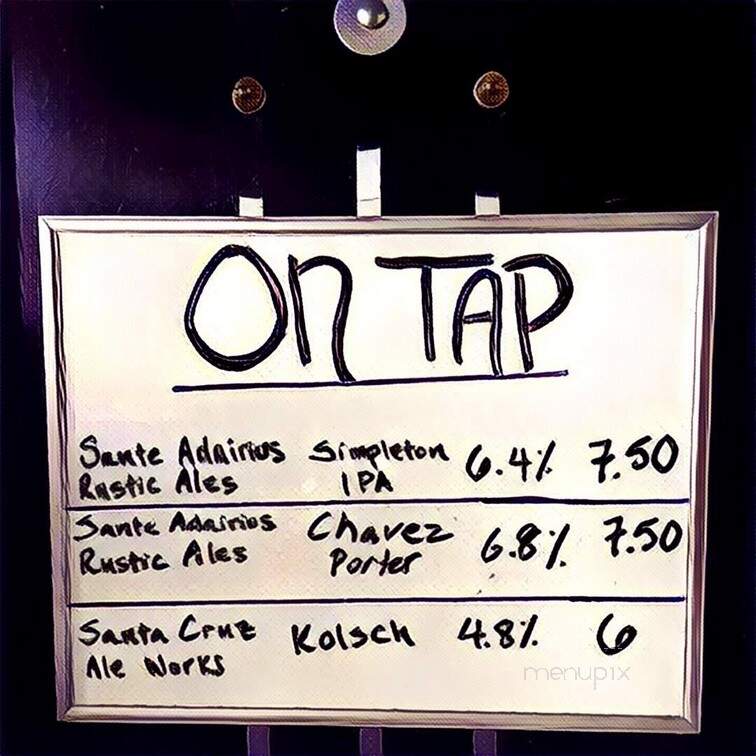 On TAP
Sante Adairius Simpleton 6.4% 7.50
Rustic Ales IPA
Sante Adairius Chavez 6.8% 7.50
Rustic Ales Porter
Santa Cruz Kolsch 4.8% 6
Ale Works
menupix